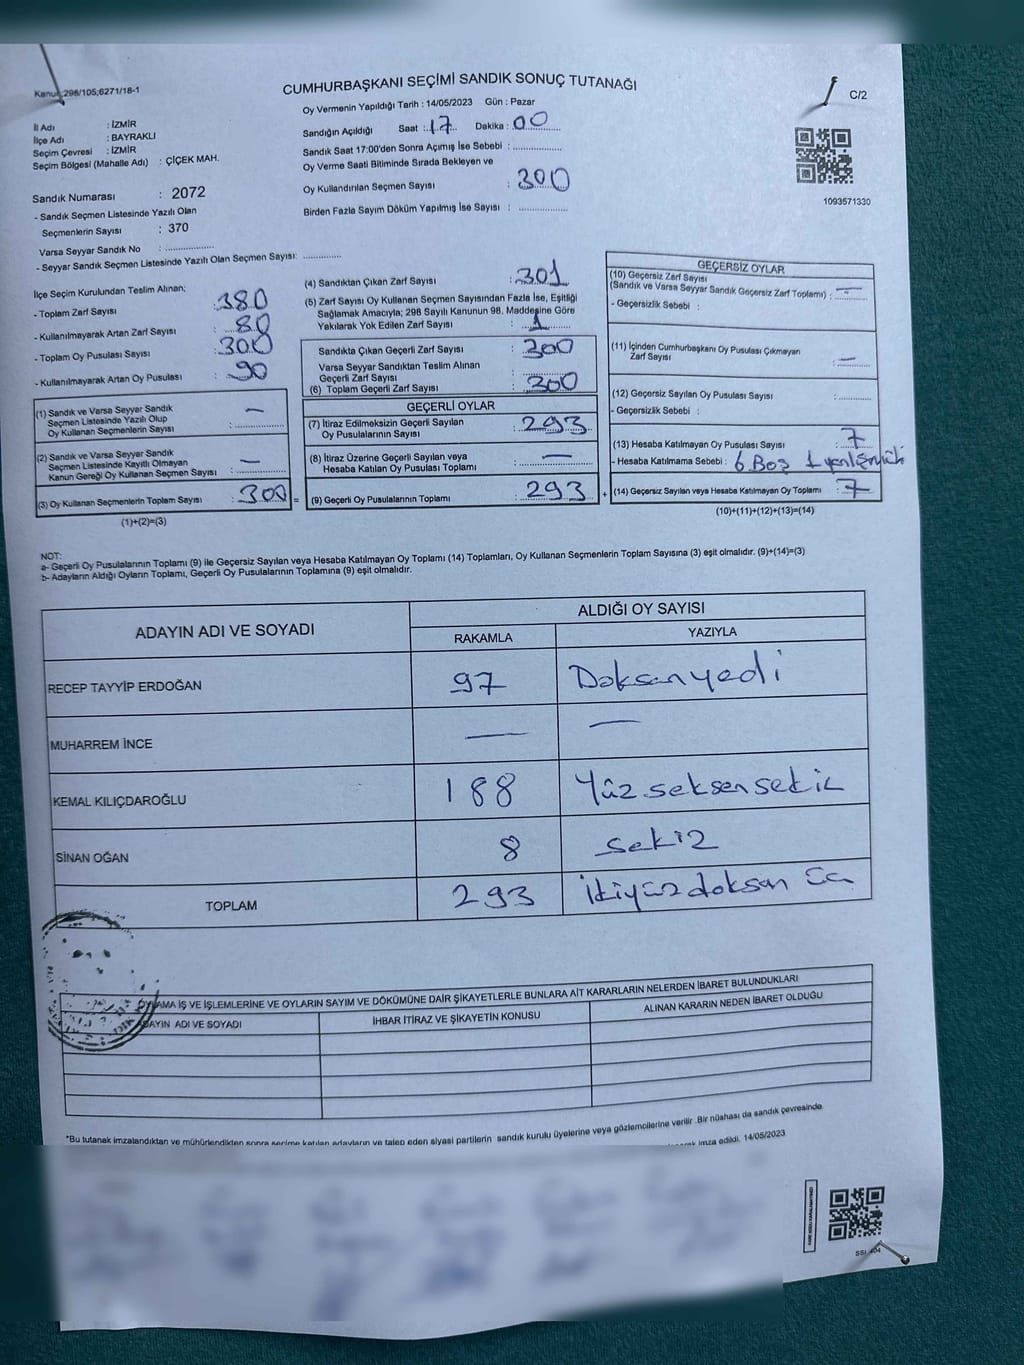 Kanun:298/105;6271/18-1
CUMHURBAŞKANI SEÇİMİ SANDIK SONUÇ TUTANAĞI
C/2
Oy Vermenin Yapıldığı Tarih : 14/05/2023 Gün : Pazar
İl Adı : İZMİR
İlçe Adı : BAYRAKLI
Seçim Çevresi : İZMİR
Seçim Bölgesi (Mahalle Adı) : ÇİÇEK MAH.
Sandığın Açıldığı Saat : 17 Dakika : 00
Sandık Saat 17:00'den Sonra Açımış İse Sebebi :
Oy Verme Saati Bitiminde Sırada Bekleyen ve
Oy Kullandırılan Seçmen Sayısı : 300
Birden Fazla Sayım Döküm Yapılmış İse Sayısı :
1093571330
Sandık Numarası : 2072
- Sandık Seçmen Listesinde Yazılı Olan
Seçmenlerin Sayısı : 370
Varsa Seyyar Sandık No :
- Seyyar Sandık Seçmen Listesinde Yazılı Olan Seçmen Sayısı:
İlçe Seçim Kurulundan Teslim Alınan;
- Toplam Zarf Sayısı : 380
- Kullanılmayarak Artan Zarf Sayısı : 80
- Toplam Oy Pusulası Sayısı : 300
- Kullanılmayarak Artan Oy Pusulası : 90
(1) Sandık ve Varsa Seyyar Sandık
Seçmen Listesinde Yazılı Olup
Oy Kullanan Seçmenlerin Sayısı : —
(2) Sandık ve Varsa Seyyar Sandık
Seçmen Listesinde Kayıtlı Olmayan
Kanun Gereği Oy Kullanan Seçmen Sayısı : —
(3) Oy Kullanan Seçmenlerin Toplam Sayısı : 300 =
(1)+(2)=(3)
(4) Sandıktan Çıkan Zarf Sayısı : 301
(5) Zarf Sayısı Oy Kullanan Seçmen Sayısından Fazla İse, Eşitliği
Sağlamak Amacıyla; 298 Sayılı Kanunun 98. Maddesine Göre
Yakılarak Yok Edilen Zarf Sayısı : 1
Sandıkta Çıkan Geçerli Zarf Sayısı : 300
Varsa Seyyar Sandıktan Teslim Alınan
Geçerli Zarf Sayısı :
(6) Toplam Geçerli Zarf Sayısı : 300
GEÇERLİ OYLAR
(7) İtiraz Edilmeksizin Geçerli Sayılan
Oy Pusulalarının Sayısı : 293
(8) İtiraz Üzerine Geçerli Sayılan veya
Hesaba Katılan Oy Pusulası Toplamı : —
(9) Geçerli Oy Pusulalarının Toplamı : 293 +
GEÇERSİZ OYLAR
(10) Geçersiz Zarf Sayısı
(Sandık ve Varsa Seyyar Sandık Geçersiz Zarf Toplamı) : —
- Geçersizlik Sebebi :
(11) İçinden Cumhurbaşkanı Oy Pusulası Çıkmayan
Zarf Sayısı : —
(12) Geçersiz Sayılan Oy Pusulası Sayısı :
- Geçersizlik Sebebi :
(13) Hesaba Katılmayan Oy Pusulası Sayısı : 7
- Hesaba Katılmama Sebebi : 6 Boş 1
(14) Geçersiz Sayılan veya Hesaba Katılmayan Oy Toplamı : 7
(10)+(11)+(12)+(13)=(14)
NOT:
a- Geçerli Oy Pusulalarının Toplamı (9) ile Geçersiz Sayılan veya Hesaba Katılmayan Oy Toplamı (14) Toplamları, Oy Kullanan Seçmenlerin Toplam Sayısına (3) eşit olmalıdır. (9)+(14)=(3)
b- Adayların Aldığı Oyların Toplamı, Geçerli Oy Pusulalarının Toplamına (9) eşit olmalıdır.
ADAYIN ADI VE SOYADI ALDIĞI OY SAYISI
RAKAMLA YAZIYLA
RECEP TAYYİP ERDOĞAN 97 Doksanyedi
MUHARREM İNCE — —
KEMAL KILIÇDAROĞLU 188 Yüz seksen sekiz
SİNAN OĞAN 8 sekiz
TOPLAM 293 ikiyüzdoksan üç
OYLAMA İŞ VE İŞLEMLERİNE VE OYLARIN SAYIM VE DÖKÜMÜNE DAİR ŞİKAYETLERLE BUNLARA AİT KARARLARIN NELERDEN İBARET BULUNDUKLARI
ADAYIN ADI VE SOYADI İHBAR İTİRAZ VE ŞİKAYETİN KONUSU ALINAN KARARIN NEDEN İBARET OLDUĞU
"Bu tutanak imzalandıktan ve mühürlendikten sonra seçime katılan adayların ve talep eden siyasi partilerin sandık kurulu üyelerine veya gözlemcilerine verilir. Bir nüshası da sandık çevresinde
imza edildi. 14/05/2023